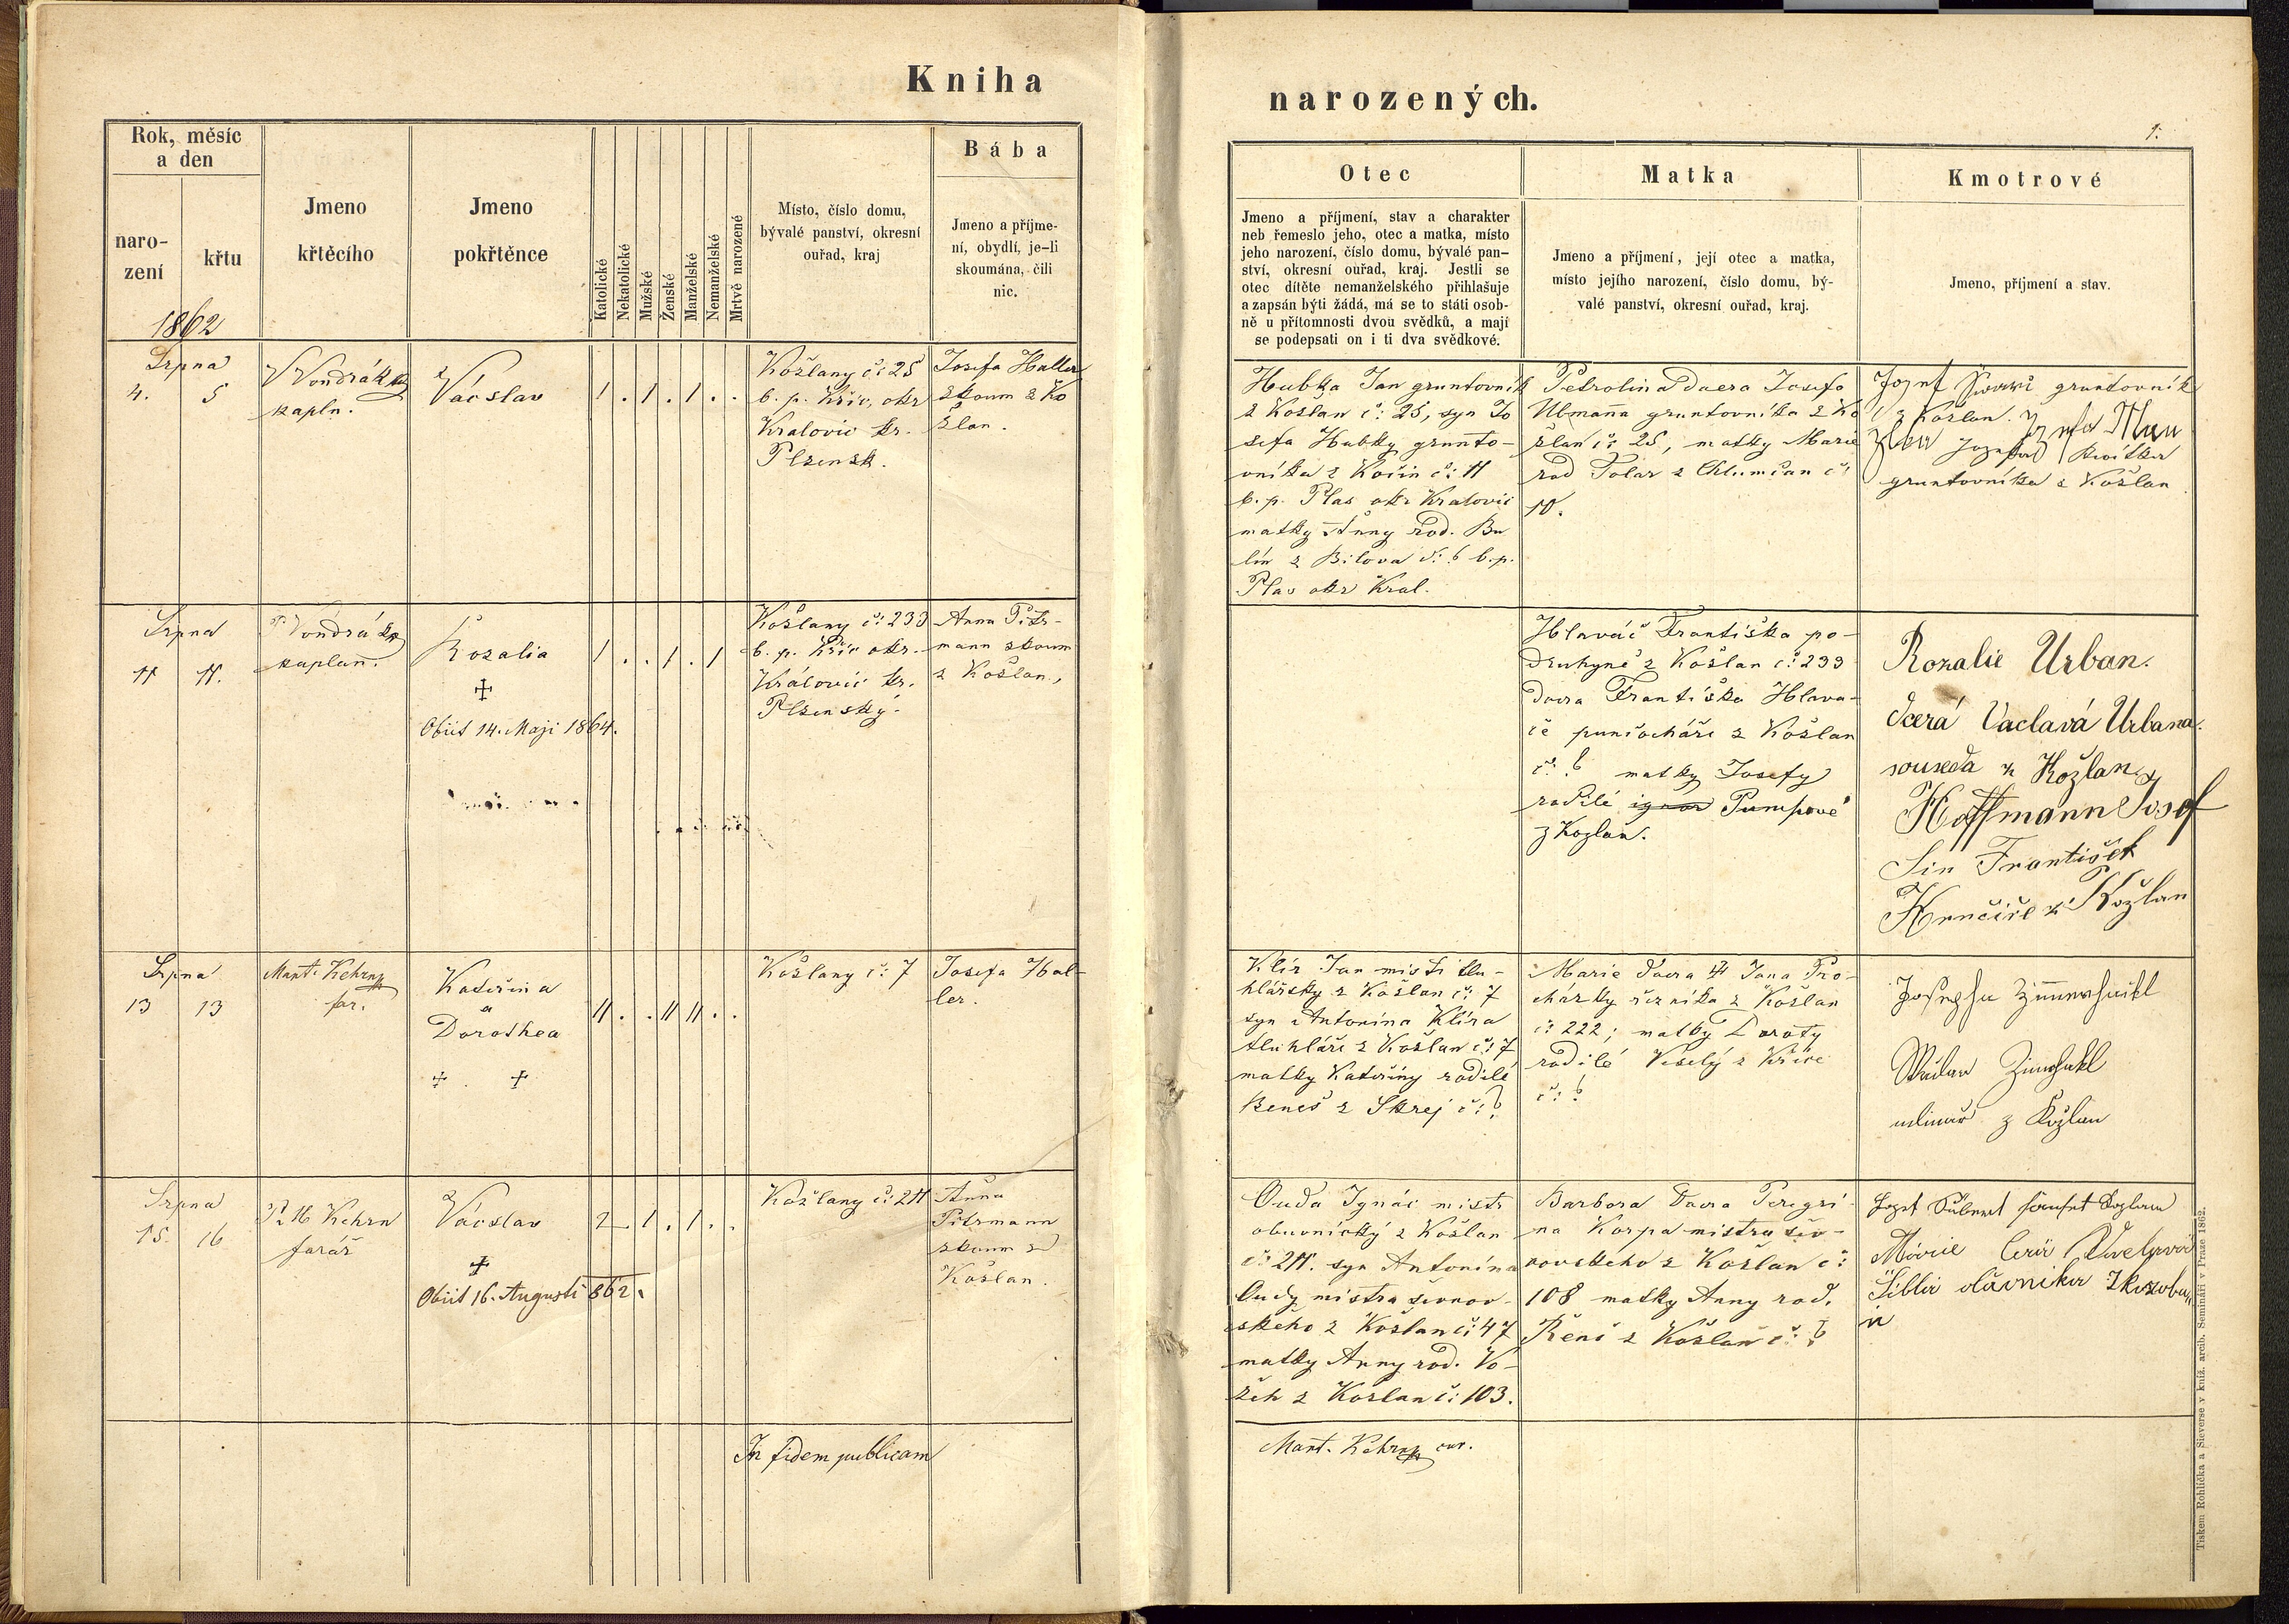 Kniha
narozených.
1.
Rok, měsíc
a den
naro-
zení
křtu
1862
Jmeno
křtěcího
Jmeno
pokřtěnce
Katolické
Nekatolické
Mužské
Ženské
Manželské
Nemanželské
Mrtvě narozené
Místo, číslo domu,
bývalé panství, okresní
ouřad, kraj
Bába
Jmeno a příjme-
ní, obydlí, je-li
skoumána, čili
nic.
Otec
Jmeno a příjmení, stav a charakter
neb řemeslo jeho, otec a matka, místo
jeho narození, číslo domu, bývalé pan-
ství, okresní ouřad, kraj. Jestli se
otec dítěte nemanželského přihlašuje
a zapsán býti žádá, má se to státi osob-
ně u přítomnosti dvou svědků, a mají
se podepsati on i ti dva svědkové.
Matka
Jmeno a příjmení, její otec a matka,
místo jejího narození, číslo domu, bý-
valé panství, okresní ouřad, kraj.
Kmotrové
Jmeno, příjmení a stav.
Srpna
4. 5
Vondrák
kapln.
Václav
1 . 1 . 1 . .
Kožlany č: 25
b. p. Křic, okr
Kralovic kr.
Plzensk.
Josefa Haller
zkoum z Ko
žlan.
Hubka Jan gruntovník
z Kožlan č: 25, syn Jo
sefa Hubky grunto-
vníka z Kočin č: 11
b. p. Plas okr Kralovic
matky Anny rod. Bu
lín z Bílova č: 6 b. p.
Plas okr Kral.
Petrolina dcera Josefa
Ulmaňa gruntovníka z Ko
žlan č: 25, matky Marie
rod Tolar z Chlumčan č:
10.
gruntovník
z Kožlan.
gruntovníka z Kožlan
Srpna
11 11.
P. Vondrák
kaplan.
Rozalia
+
Obiit 14. Maji 1864.
1 . . 1 . 1
Kožlany č: 233
b. p. Křic okr.
Královic kr.
Plzenský.
Anna Pitr-
mann zkoum
z Kožlan,
Hlaváč Františka po-
druhyně z Kožlan č: 233
dcera Františka Hlava-
če punčocháře z Kožlan
č: 6 matky Josefy
rodilé Pumpové
z Kozlan.
Rozalie Urban.
dcerá Vaclavá Urbana.
souseda z Kožlan
Hoffmann Josef
Sin František
z Kožlan
Srpna
13 13
Mart. Kehrn
far.
Kateřina
a
Dorothea
+ . +
11 . . 11 11 . .
Kožlany č: 7
Josefa Hal-
ler.
Klír Jan mistr tru-
hlářský z Kožlan č: 7
syn Antonína Klíra
truhláře z Kožlan č: 7
matky Kateřiny rodilé
Beneš z Skrej č: ?
Marie dcera Jana Pro-
cházky řezníka z Kožlan
č: 222; matky Doroty
rodilé Veselý z Křice
č: ?
mlinař z Kožlan
Srpna
15. 16
P. M Kehrn
farář
Václav
+
Obiit 16. Augusti 862.
2 . 1 . 1 . .
Kožlany č: 211
Anna
Pitrmann
zkoum z
Kožlan.
Ouda Ignác mistr
obuvnický z Kožlan
č: 211. syn Antonína
Oudy mistra ševcov-
ského z Kožlan č: 47
matky Anny rod. Vo-
žeh z Kožlan č: 103.
Barbora dcera Peregri-
na Korpa mistra šev-
covského z Kožlan č:
108 matky Anny rod.
Řenč z Kožlan č: ?
In fidem publicam
Mart. Kehrn cur.
Tiskem Rohlíčka a Sieverse v kníž. arcib. Semináři v Praze 1862.